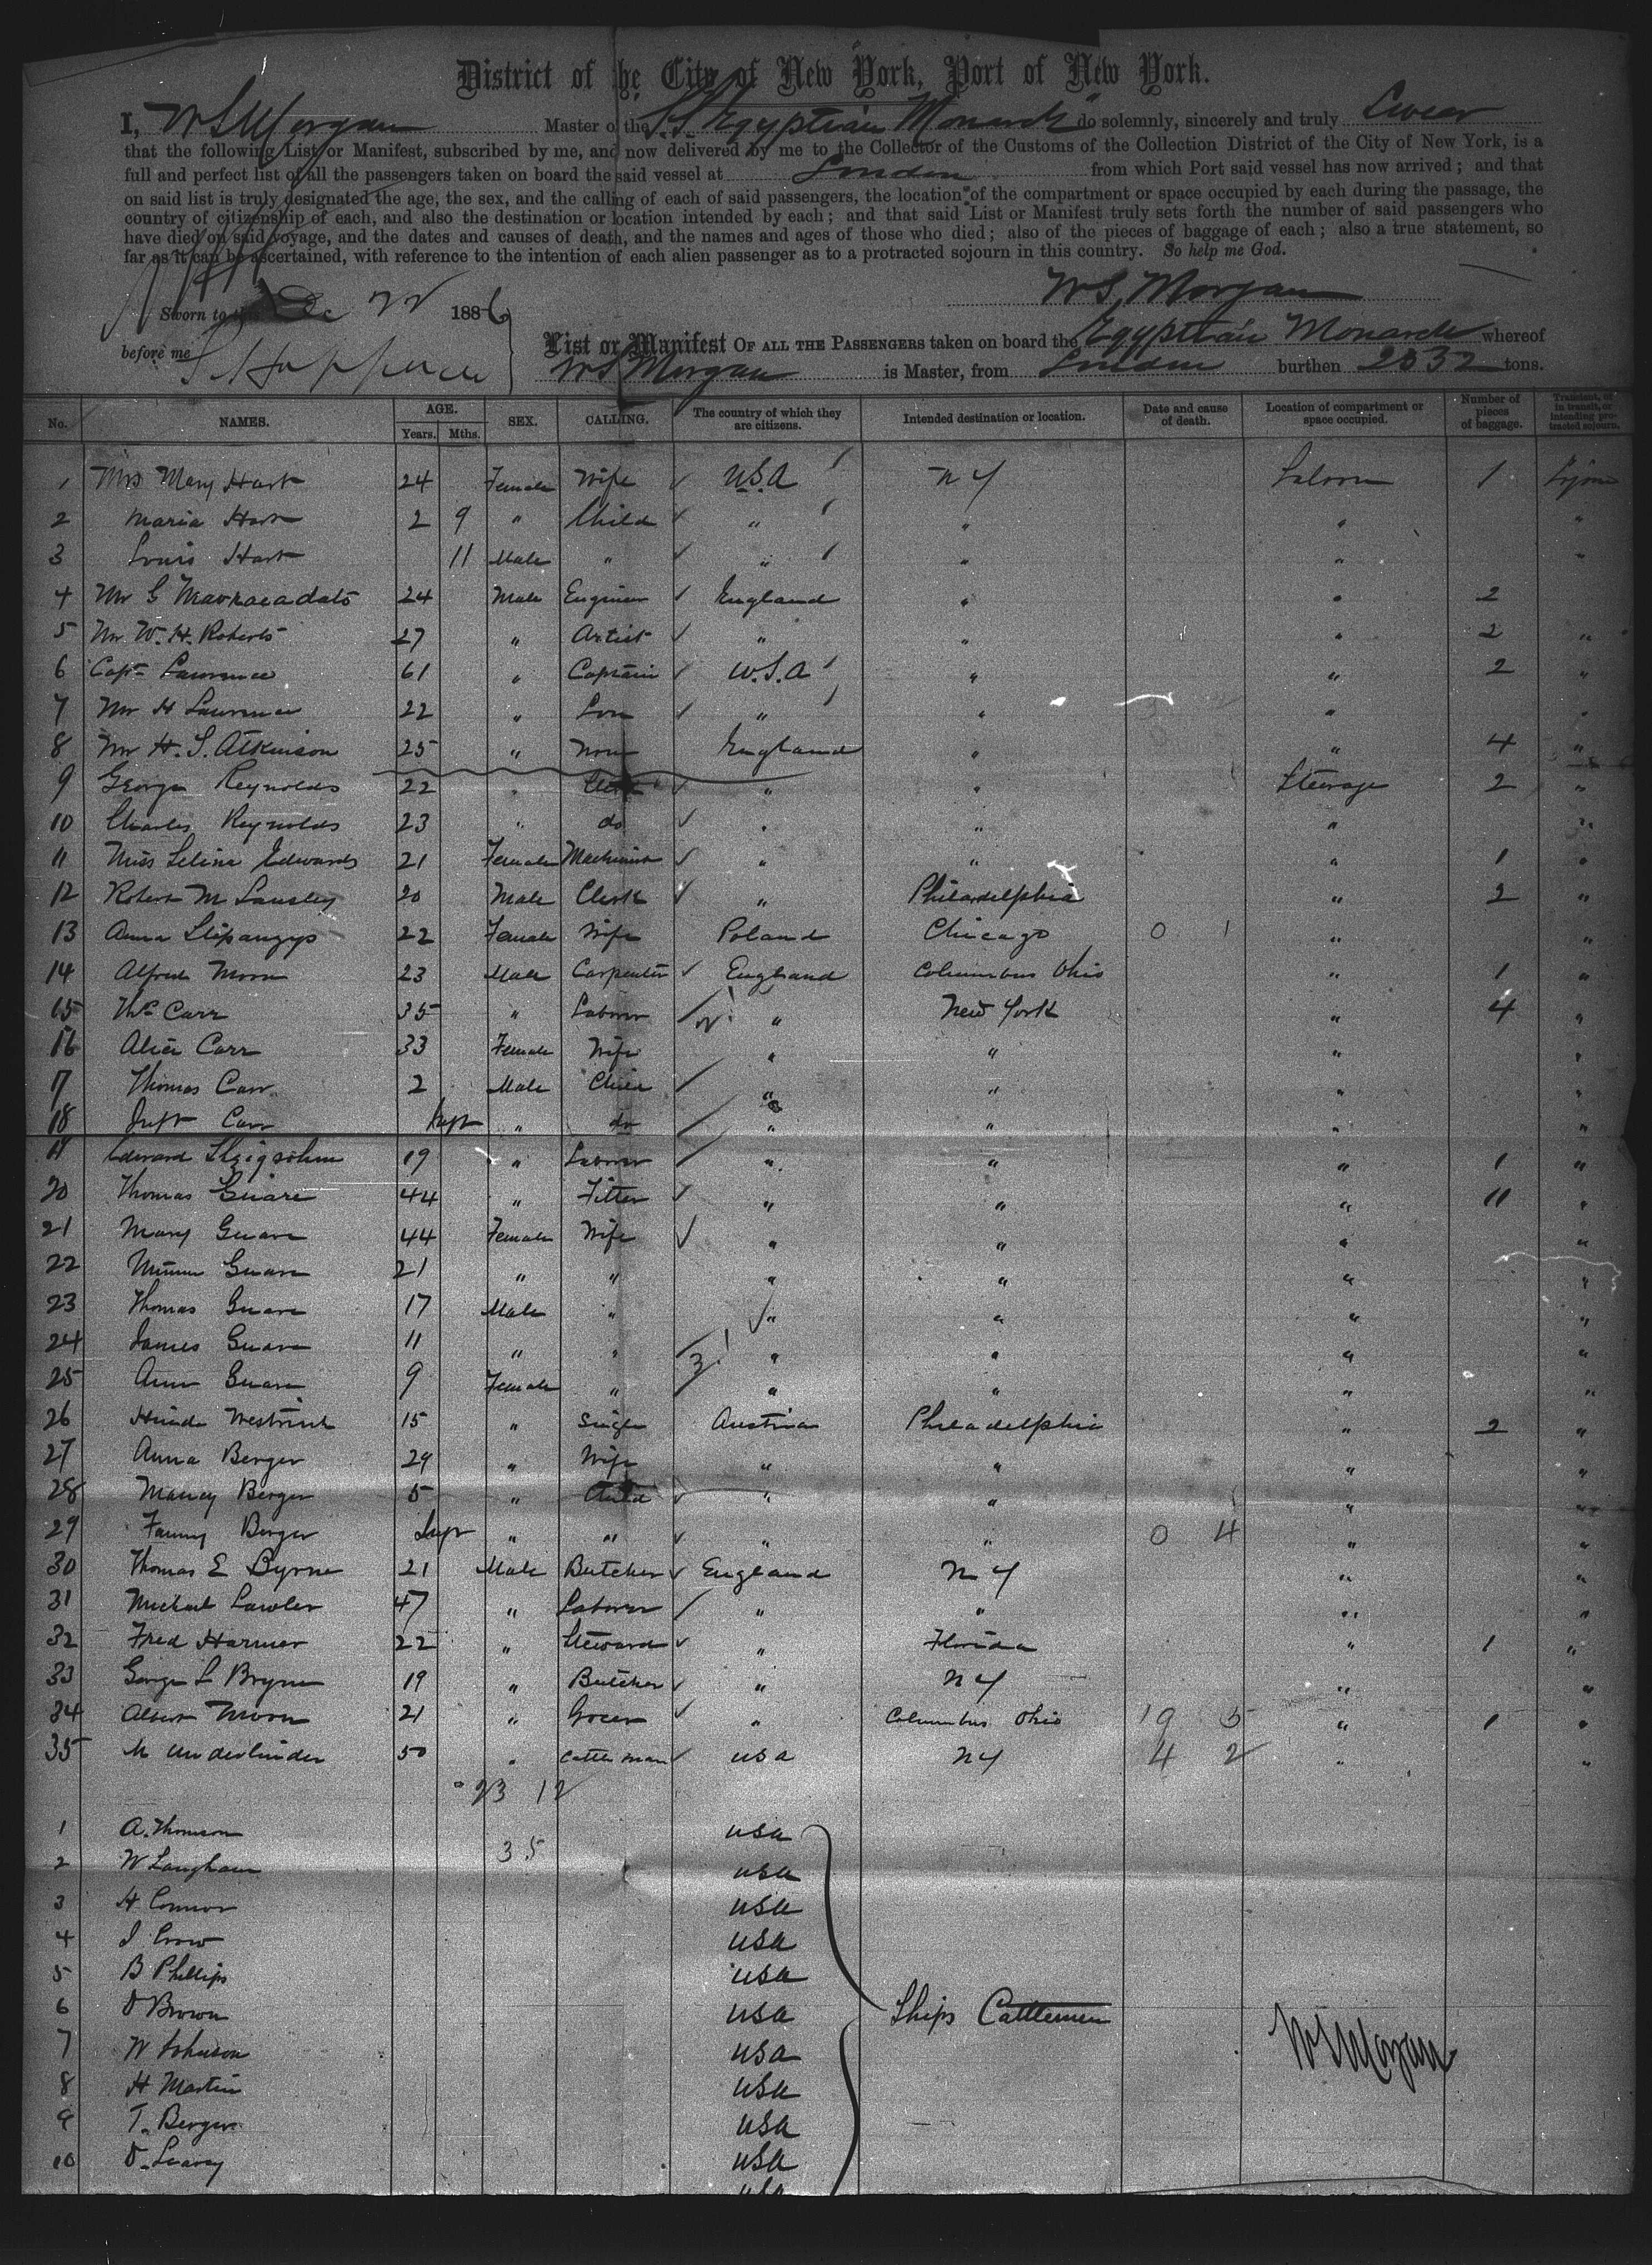 District of the City of New York, Port of New York.
I, W S Morgan Master of the S.S. "Egyptian Monarch" do solemnly, sincerely and truly Swear
that the following List or Manifest, subscribed by me, and now delivered by me to the Collector of the Customs of the Collection District of the City of New York, is a
full and perfect list of all the passengers taken on board the said vessel at London from which Port said vessel has now arrived; and that
on said list is truly designated the age, the sex, and the calling of each of said passengers, the location of the compartment or space occupied by each during the passage, the
country of citizenship of each, and also the destination or location intended by each; and that said List or Manifest truly sets forth the number of said passengers who
have died on said voyage, and the dates and causes of death, and the names and ages of those who died; also of the pieces of baggage of each; also a true statement, so
far as it can be ascertained, with reference to the intention of each alien passenger as to a protracted sojourn in this country. So help me God.
W S Morgan
Sworn to this Dec 22 1886
before me
List or Manifest OF ALL THE PASSENGERS taken on board the Egyptian Monarch whereof
W S Morgan is Master, from London burthen 2532 tons.
No. NAMES. AGE. Years. Mths. SEX. CALLING. The country of which they are citizens. Intended destination or location. Date and cause of death. Location of compartment or space occupied. Number of pieces of baggage. Transient, or in transit, or intending protracted sojourn.
1 Mrs Mary Hart 24 Female Wife U.S.A N Y Saloon 1
2 Maria Hart 2 9 " Child " " " "
3 Louis Hart 11 Male " " " " "
4 Mr G 24 Male Engineer England " " 2
5 Mr W. H. Roberts 27 " Artist " " " 2 "
6 Capt Lawrence 61 " Captain U.S.A " " 2 "
7 Mr H Lawrence 22 " Son " " " "
8 Mr H. S. Atkinson 25 " None England " " 4 "
9 George Reynolds 22 " Clerk " " Steerage 2 "
10 Charles Reynolds 23 " do " " " "
11 Miss Selina Edwards 21 Female Machinist " " " 1 "
12 Robert M Lansley 20 Male Clerk " Philadelphia " 2 "
13 Anna 22 Female Wife Poland Chicago 0 1 " "
14 Alfred Moon 23 Male Carpenter England Columbus Ohio " 1 "
15 Wm Carr 35 " Laborer " New York " 4 "
16 Alice Carr 33 Female Wife " " " "
17 Thomas Carr 2 Male Child " " " "
18 Inft Carr Inft " do " " " "
19 Edward 19 " Laborer " " " 1 "
20 Thomas Guare 44 " Fitter " " " 11 "
21 Mary Guare 44 Female Wife " " " "
22 Guare 21 " " " " " "
23 Thomas Guare 17 Male " " " " "
24 James Guare 11 " " " " " "
25 Ann Guare 9 Female " " " " "
26 15 " Single Austria Philadelphia " 2 "
27 Anna Berger 29 " Wife " " " "
28 Berger 5 " Child " " " "
29 Fanny Berger Inft " " " " 0 4 " "
30 Thomas E Byrne 21 Male Butcher England N Y " "
31 Michael Lawler 47 " Laborer " " " "
32 Fred Harmer 22 " Steward " Florida " 1 "
33 George L Bryne 19 " Butcher " N Y " "
34 Albert Moon 21 " Grocer " Columbus Ohio 19 5 " 1 "
35 M Underlinder 50 " Cattle man USA N Y 4 2 " "
23 12
35
1 A. Thomson USA
2 W Langham USA
3 H Connor USA
4 J Crow USA
5 B Phillips USA
6 D Brown USA Ships Cattlemen
7 W Johnson USA
8 H Martin USA
9 T. Berger USA
10 D. Leary USA
W S Morgan